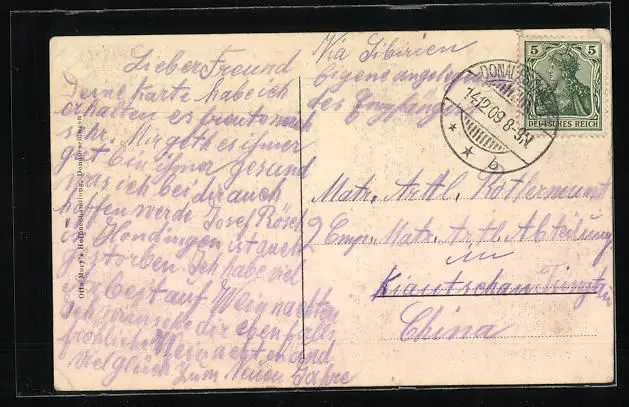 Lieber Freund
Deine Karte habe ich
erhalten es freute mich
sehr. Mir geth es imer
gut bin imer gesund
was ich bei dir auch
hoffen werde Josef Rösch
in Hondingen ist auch
gestorben. Ich habe viel
Arbeit auf Weignachten
Ich wünsche dir ebenfalls
fröhliche Weinachten und
viel glück Zum Neuen Jahre
Via Sibirien
Eigene angelegenh
des Empfängers
DONAUESCHINGEN
14.12.09.8-9N.
* * b
5 5
DEUTSCHES REICH
Matr. Artl. Rothermunt
2 Comp. Matr. Artl. Abteilung
in
Kiautschau Tientsin
China
Otto Mory's Hofbuchhandlung, Donaueschingen